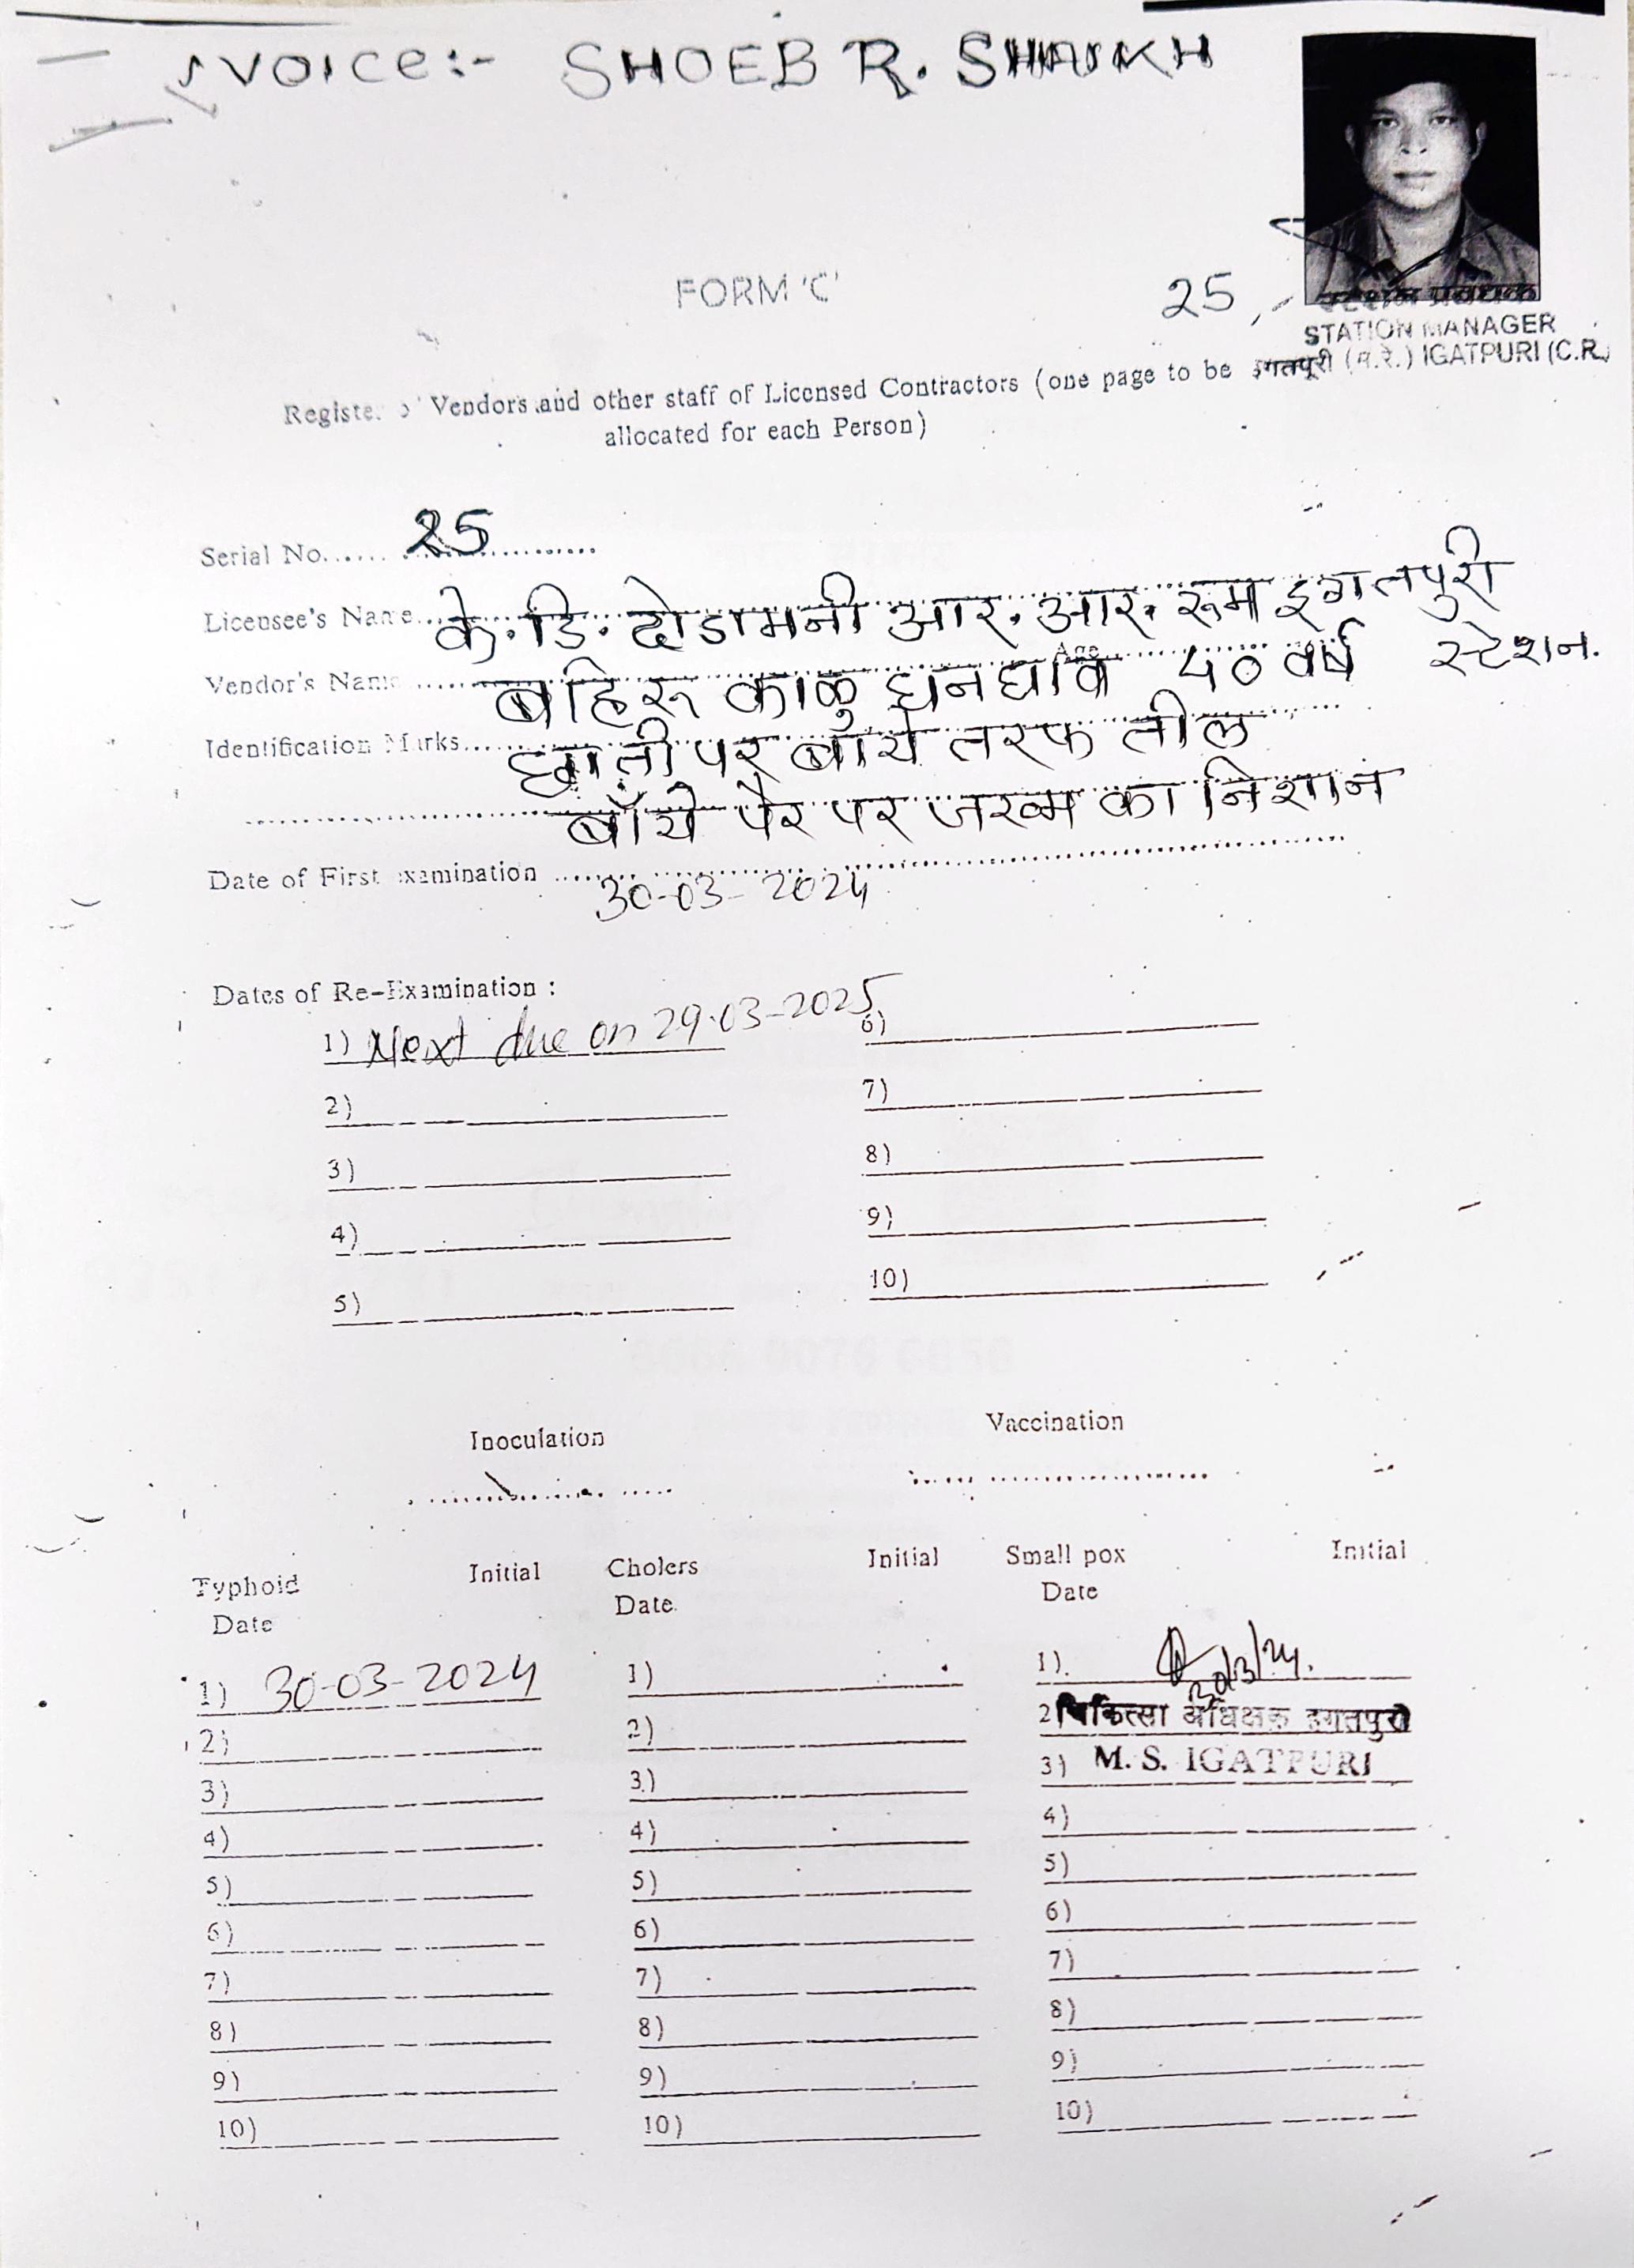 VOICE:- SHOEB R. SHAIKH
FORM 'C'
25
STATION MANAGER
इगतपूरी (म.रे.) IGATPURI (C.R.)
Register Vendors and other staff of Licensed Contractors (one page to be
allocated for each Person)
Serial No. 25
Licensee's Name के. डि. दोडामनी आर. आर. रूम इगतपुरी
स्टेशन.
Vendor's Name बहिरू काळु घनघाव Age ५० वर्ष
Identification Marks छाती पर बाँये तरफ तील
बाँये पैर पर जख्म का निशान
Date of First Examination 30-03-2024
Dates of Re-Examination :
1) Next due on 29-03-2025 6)
2) 7)
3) 8)
4) 9)
5) 10)
Inoculation Vaccination
Typhoid Initial Cholers Initial Small pox Initial
Date Date Date
1) 30-03-2024 1) 1) 30/3/24.
2) 2) 2) चिकित्सा अधिक्षक इगतपुरी
3) 3) 3) M. S. IGATPURI
4) 4) 4)
5) 5) 5)
6) 6) 6)
7) 7) 7)
8) 8) 8)
9) 9) 9)
10) 10) 10)